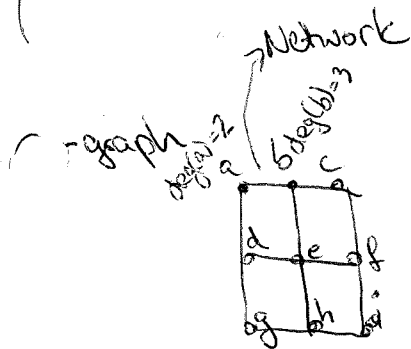 Network
-graph
deg(a)=2
deg(b)=3
a b c
d e f
g h i